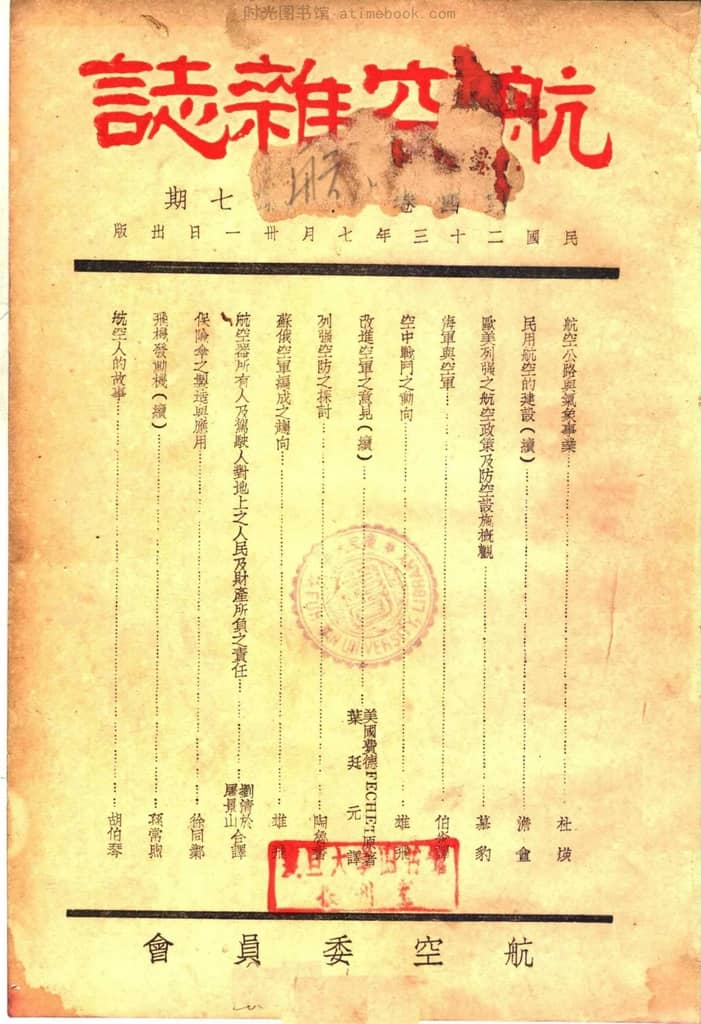 时光图书馆 - atimebook.com
航空雜誌
第四卷 七期
民國二十三年七月卅一日出版
航空公路與氣象事業 杜煐
民用航空的建設(續) 澹盦
歐美列强之航空政策及防空設施概觀 慕豹
海軍與空軍 伯
空中戰鬥之動向 雄飛
改進空軍之意見(續) 美國費德FECHET原著 葉廷元譯
列强空防之探討 陶魯書
蘇俄空軍編成之趨向 雄飛
航空器所有人及駕駛人對地上之人民及財產所負之責任 劉清於 屠景山 合譯
保險傘之製造與應用 徐同鄴
飛機發動機(續) 孫常煦
航空人的故事 胡伯琴
UNIVERSITY LIBRARY
復旦大學图书館
航空委員會